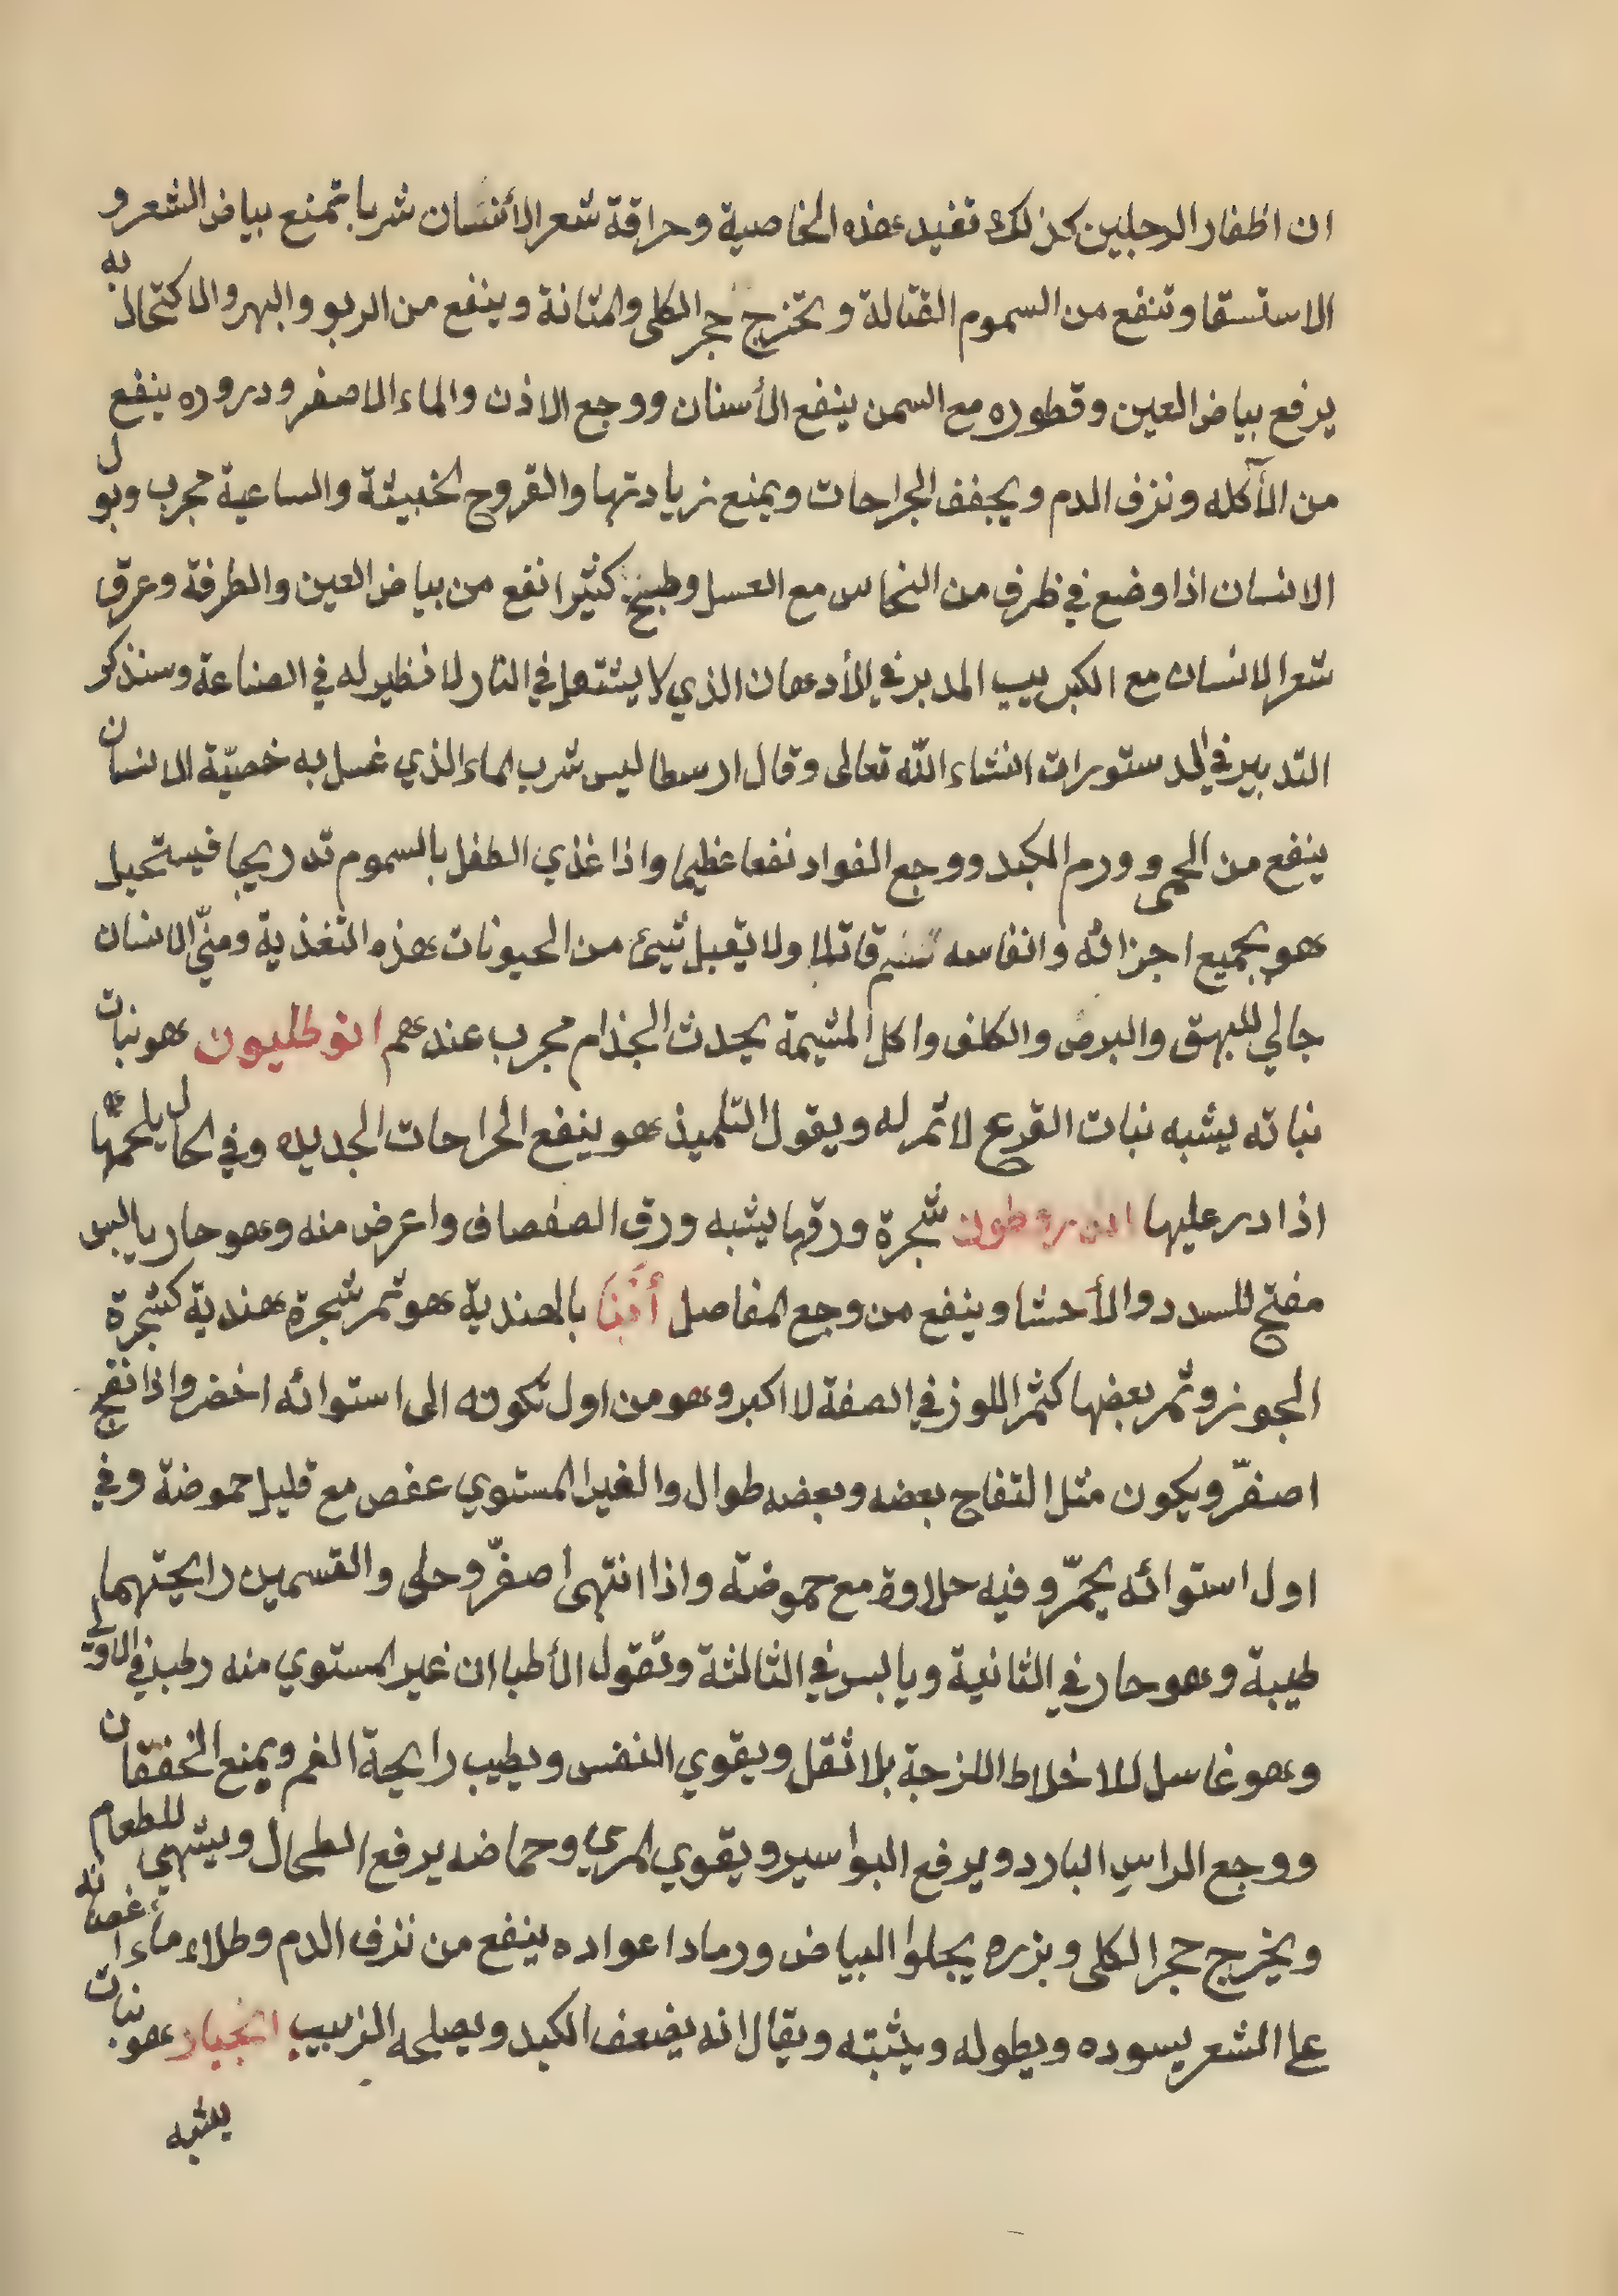 ان اظفار الرجلين كذلك تفيد هذه الخاصية وحراقة شعر الأنسان شربا تمنع بياض الشعر و
الاستسقا وتنفع من السموم القتالة وتخرج حجر الكلى والمثانة وينفع من الربو والبهر والاكتحال به
يرفع بياض العين وقطوره مع السمن ينفع الأسنان ووجع الاذن والماء الاصفر ودروره ينفع
من الأكله ونزف الدم ويجفف الجراحات ويمنع زيادتها والقروح الخبيثة والساعية مجرب وبول
الانسان اذا وضع في ظرف من النحاس مع العسل وطبخ كثيرا نفع من بياض العين والطرفة وعرق
شعر الانسان مع الكبريت المدبر في الأدهان الذي لا يشتعل في النار لا نظير له في الصناعة وسنذكر
التدبير في الدستورات انشاء الله تعالى وقال ارسطاليس شرب الماء الذي غسل به خصيّة الانسان
ينفع من الحمى وورم الكبد ووجع الفواد نفعا عظيما واذا غذي الطفل بالسموم تدريجا فيستحيل
هو بجميع اجزائه وانفاسه سم قاتلا ولا يقبل شيئ من الحيونات هذه التغذية ومنّي الانسان
جالي للبهق والبرص والكلف واكل المشيمة يحدث الجذام مجرب عندهم انوطليون هو نبات
نباته يشبه نبات القرع لا ثمر له ويقول التلميذ هو ينفع الجراحات الجديده وفي الحال يلحمها
اذا در عليها شجرة ورقها يشبه ورق الصفصاف واعرض منه وهو حار يابس
مفتح للسدد والأحشا وينفع من وجع المفاصل أَنْبَا بالهندية هو ثمر شجرة هندية كشجرة
الجوز وثمر بعضها كثمر اللوز في الصفة لا اكبر وهو من اول تكونه الى استوائه اخضر واذا نضج
اصفرّ ويكون مثل التفاح بعضه وبعضه طوال والغير المستوي عفص مع قليل حموضة وفي
اول استوائه يحمرّ وفيه حلاوة مع حموضة واذا انتهى اصفرّ وحلى والقسمين رايحتهما
طيبة وهو حار في الثانية ويابس في الثالثة وتقول الأطبا ان غير المستوي منه رطب في الاولى
وهو غاسل للاخلاط اللزجة بلا ثقل ويقوي النفس ويطيب رايحة الفم ويمنع الخفقان
ووجع الراس البارد ويرفع البواسير ويقوي المري وحماضه يرفع الطحال ويشهي للطعام
ويخرج حجر الكلى وبزره يجلوا البياض ورماد اعواده ينفع من نزف الدم وطلاء ماء اغصانه
علا الشعر يسوده ويطوله ويثبته ويقال انه يضعف الكبد ويصلحه الزبيب انجبار هو نبات
يشبه